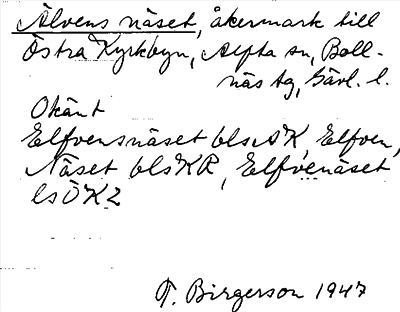 Älvens näset, åkermark till
Östra Kyrkbyn, Alfta sn, Boll-
näs tg, Gävl. l.
Okänt
Elfvensnäset blsAK, Elfven,
Näset blsKR, Elfvenäset
lsÖK2
T. Birgerson 1947